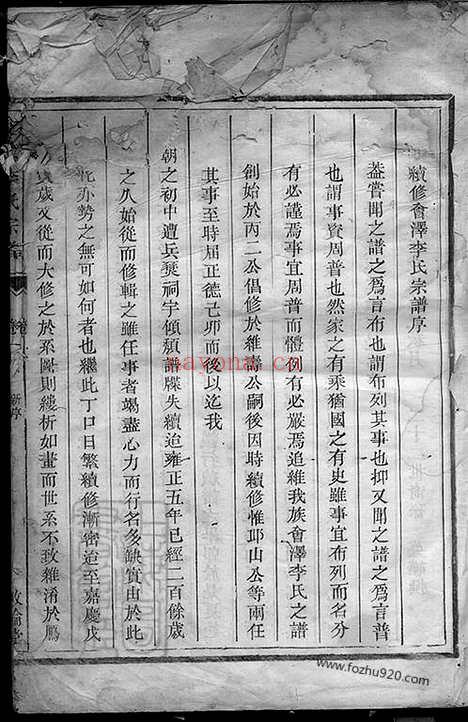 續修會澤李氏宗譜序
蓋嘗聞之譜之爲言布也謂布列其事也抑又聞之譜之爲言普
也謂事資周普也然家之有乘猶國之有史雖事宜布列而名分
有必謹焉事宜周普而體例有必嚴焉追維我族會澤李氏之譜
創始於丙二公倡修於維壽公嗣後因時續修惟邛山公等兩任
其事至時届正德己卯而後以迄我
朝之初中遭兵燹祠宇傾頽譜牒失續迨雍正五年已經二百餘歲
之久始從而修輯之雖任事者竭盡心力而行名多缺實由於此
此亦勢之無可如何者也繼此丁口日繁續修漸密迨至嘉慶戊
歲又從而大修之於系圖則縷析如畫而世系不致雜淆於鴈
氏宗譜
新序
敦倫堂
nayona.cn
www.fozhu920.com